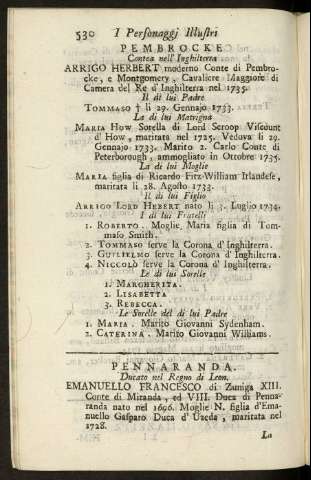 530 I Personaggj Illustri
PEMBROCKE
Contea nell'Inghilterra.
ARRIGO HERBERT moderno Conte di Pembro-
cke, e Montgomery, Cavaliere Maggiore di
Camera del Re d'Inghilterra nel 1735.
Il di lui Padre
TOMMASO † li 29. Gennajo 1733.
La di lui Matrigna
MARIA HOW Sorella di Lord Scroop Viscount
d'How, maritata nel 1725. Vedova li 29.
Gennajo 1733. Marito 2. Carlo Conte di
Peterborough, ammogliato in Ottobre 1735.
La di lui Moglie
MARIA figlia di Ricardo Fitz-William Irlandese,
maritata li 28. Agosto 1733.
Il di lui Figlio
ARRIGO LORD HEBERT nato li 3. Luglio 1734.
I di lui Fratelli
1. ROBERTO. Moglie, Maria figlia di Tom-
maso Smith.
2. TOMMASO serve la Corona d'Inghilterra.
3. GUGLIELMO serve la Corona d'Inghilterra.
4. NICCOLÒ serve la Corona d'Inghilterra.
Le di lui Sorelle
1. MARGHERITA.
2. LISABETTA
3. REBECCA.
Le Sorelle del di lui Padre
1. MARIA. Marito Giovanni Sydenham.
2. CATERINA. Marito Giovanni Williams.
PENNARANDA.
Ducato nel Regno di Leon.
EMANUELLO FRANCESCO di Zuniga XIII.
Conte di Miranda, ed VIII. Duca di Penna-
randa nato nel 1696. Moglie N. figlia d'Ema-
nuello Gasparo Duca d'Uzeda, maritata nel
1728.
La